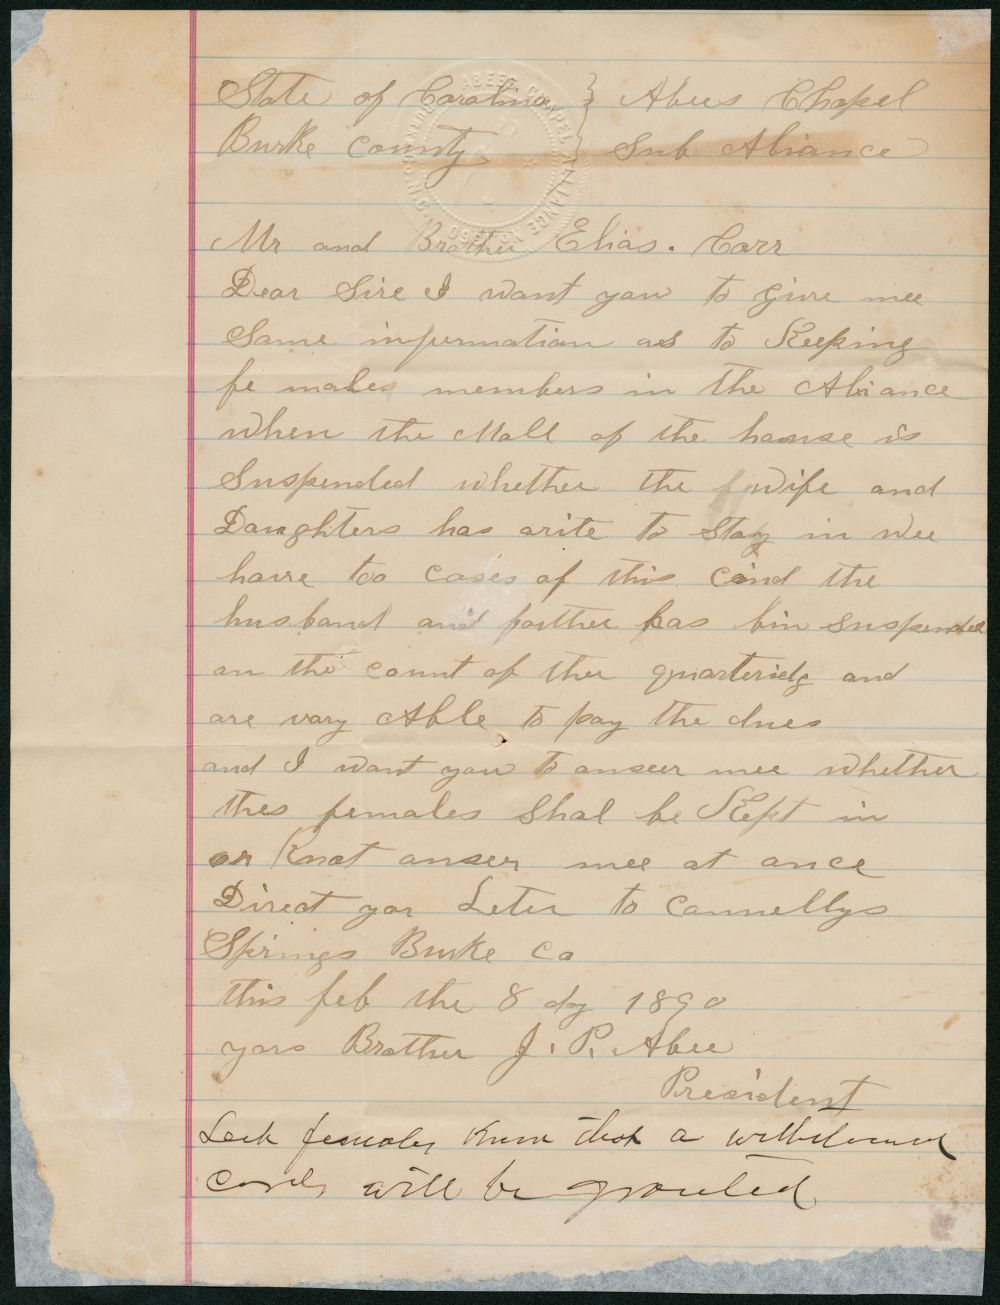 State of Carolina } Abees Chapel
Burke County } Sub Aliance
ABEES CHAPEL ALLIANCE No 1560 BURKE CO. N.C.
Mr and Brother Elias. Carr
Dear Sire I want you to give mee
Some infurmation as to Keeping
fe males members in the Aliance
When the Mall of the house is
Suspended whether the wife and
Daughters has arite to Stay in Wee
have too cases of this cind the
husband and farther has bin suspended
on the count of ther quarteridg and
are vary Able to pay the dues
and I want you to anseer mee whether
thes females Shal be Kept in
or Knot anseer mee at once
Direct yor Leter to Connellys
Springs Burke Co
this feb the 8 day 1890
yors Brother J. P. Abee
President
females Know that a withdrawal
cards will be granted